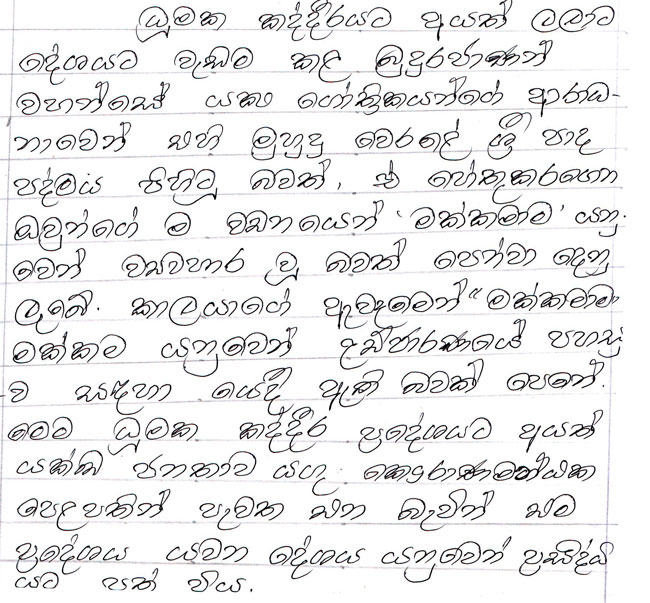 ධූමක කද්දීරයට අයත් ලබාට
දේශයට වැඩම කළ බුදුරජාණන්
වහන්සේ යක්‍ෂ ගෝත්‍රිකයන්ගේ ආරාධ-
නාවෙන් සහි මුහුදු වෙරළේ ශ්‍රී පාද
පද්මය පිහිටු බවත්, ඒ හේතුකරගෙන
ඔවුන්ගේ ම වචනයෙන් 'මක්කමාම' යනු-
වෙන් ව්‍යවහාර වූ බවත් පෙන්වා දෙනු
ලැබේ. කාලයාගේ ඇවෑමෙන් "මක්කමාම
මක්කම යනුවෙන් උච්චාරණයේ පහසු
ව සඳහා යෙදී ඇති බවක් පෙනේ.
මෙම ධූමක කද්දීර ප්‍රදේශයට අයත්
යක්ඛ ජනතාව යයුෑ
පෙළපතින් පැවත එන බැවින් එම
ප්‍රදේශය යවන දේශය යනුවෙන් ප්‍රසිද්ධි
යට පත් විය.